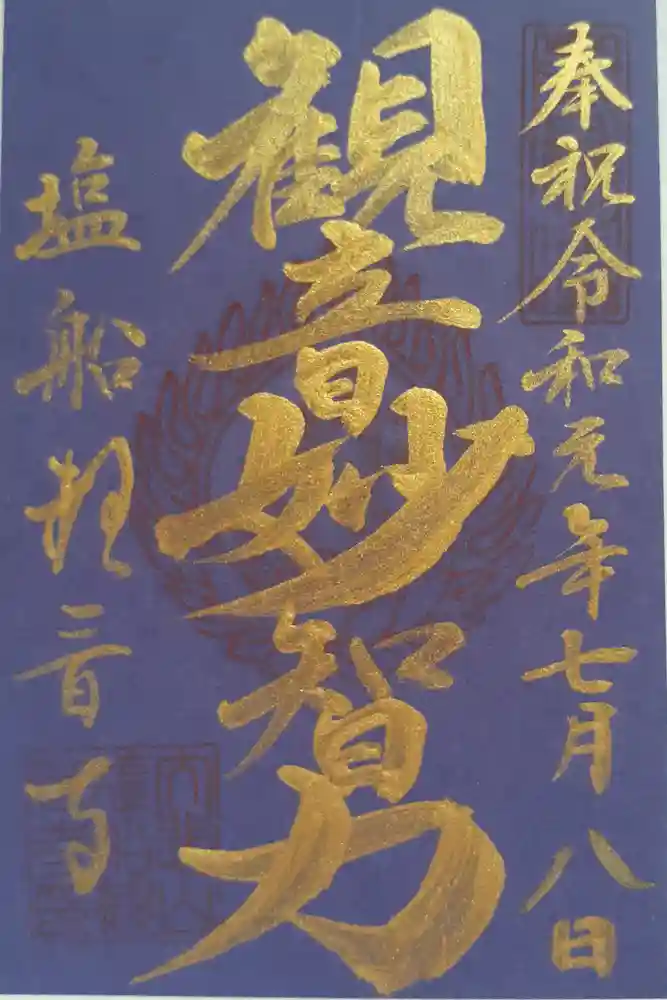 奉祝令和元年七月八日
観音妙智力
塩船観音寺